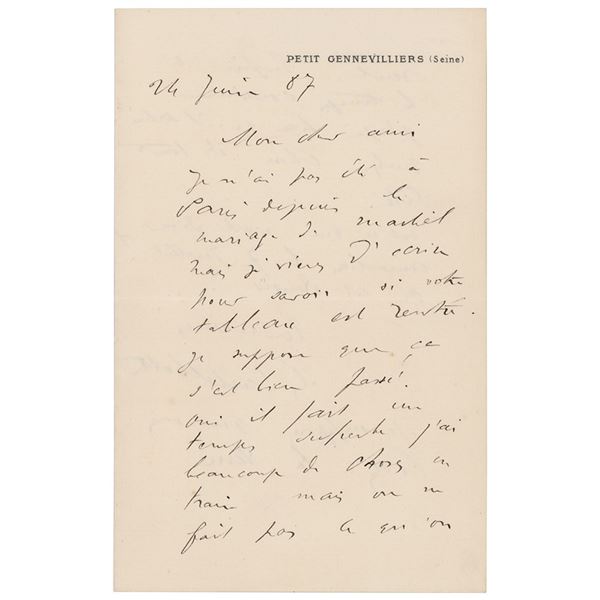 PETIT GENNEVILLIERS (Seine)
24 Juin 87
Mon cher ami
je n'ai pas été à
Paris depuis le
mariage de
mais je viens d'écrire
pour savoir si votre
tableau est rentré.
je suppose que ça
s'est bien passé.
oui il fait un
temps superbe j'ai
beaucoup de choses en
train mais on ne
fait pas ce qu'on